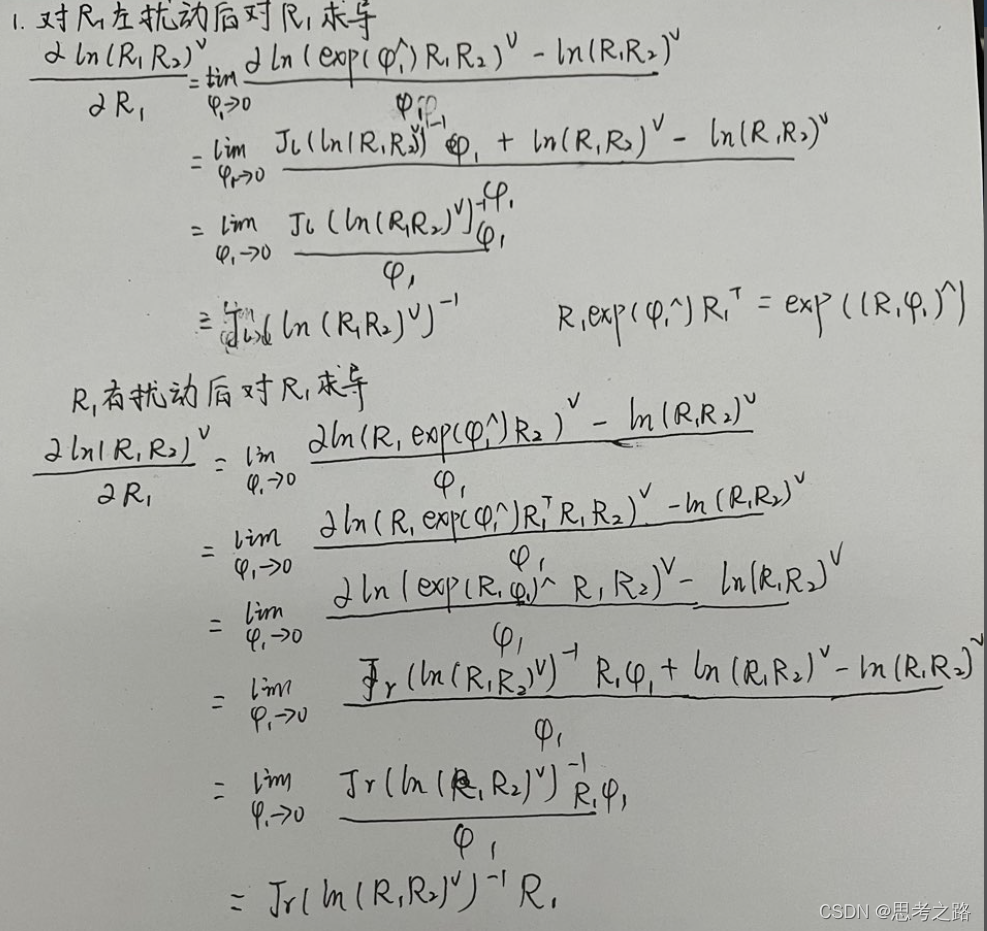 1. 对R₁左扰动后对R₁求导
∂ln(R₁R₂)^∨ / ∂R₁ = lim φ₁→0 ∂ln(exp(φ₁^)R₁R₂)^∨ - ln(R₁R₂)^∨ / φ₁
= lim φ₁→0 J_l(ln(R₁R₂)^∨)^-1 φ₁ + ln(R₁R₂)^∨ - ln(R₁R₂)^∨
= lim φ₁→0 J_l(ln(R₁R₂)^∨)^-1 φ₁ / φ₁
= J_l(ln(R₁R₂)^∨)^-1 R₁exp(φ₁^)R₁^T = exp((R₁φ₁)^)
R₁右扰动后对R₁求导
∂ln(R₁R₂)^∨ / ∂R₁ = lim φ₁→0 ∂ln(R₁exp(φ₁^)R₂)^∨ - ln(R₁R₂)^∨ / φ₁
= lim φ₁→0 ∂ln(R₁exp(φ₁^)R₁^T R₁R₂)^∨ - ln(R₁R₂)^∨ / φ₁
= lim φ₁→0 ∂ln(exp(R₁φ₁)^ R₁R₂)^∨ - ln(R₁R₂)^∨ / φ₁
= lim φ₁→0 J_r(ln(R₁R₂)^∨)^-1 R₁φ₁ + ln(R₁R₂)^∨ - ln(R₁R₂)^∨ / φ₁
= lim φ₁→0 J_r(ln(R₁R₂)^∨)^-1 R₁φ₁ / φ₁
= J_r(ln(R₁R₂)^∨)^-1 R₁
CSDN @思考之路